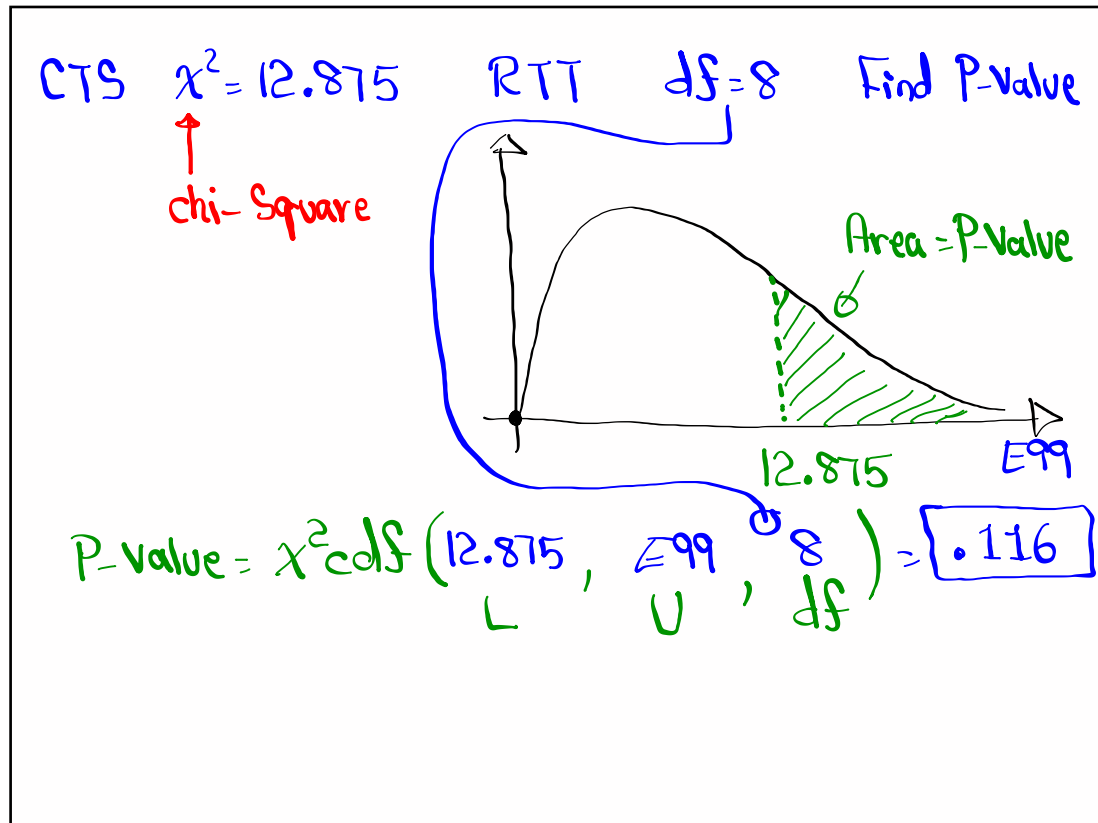 CTS χ²=12.875 RTT df=8 Find P-Value
chi-Square
Area=P-Value
12.875 E99
P-Value = χ²cdf(12.875, E99, 8) = .116
L U df